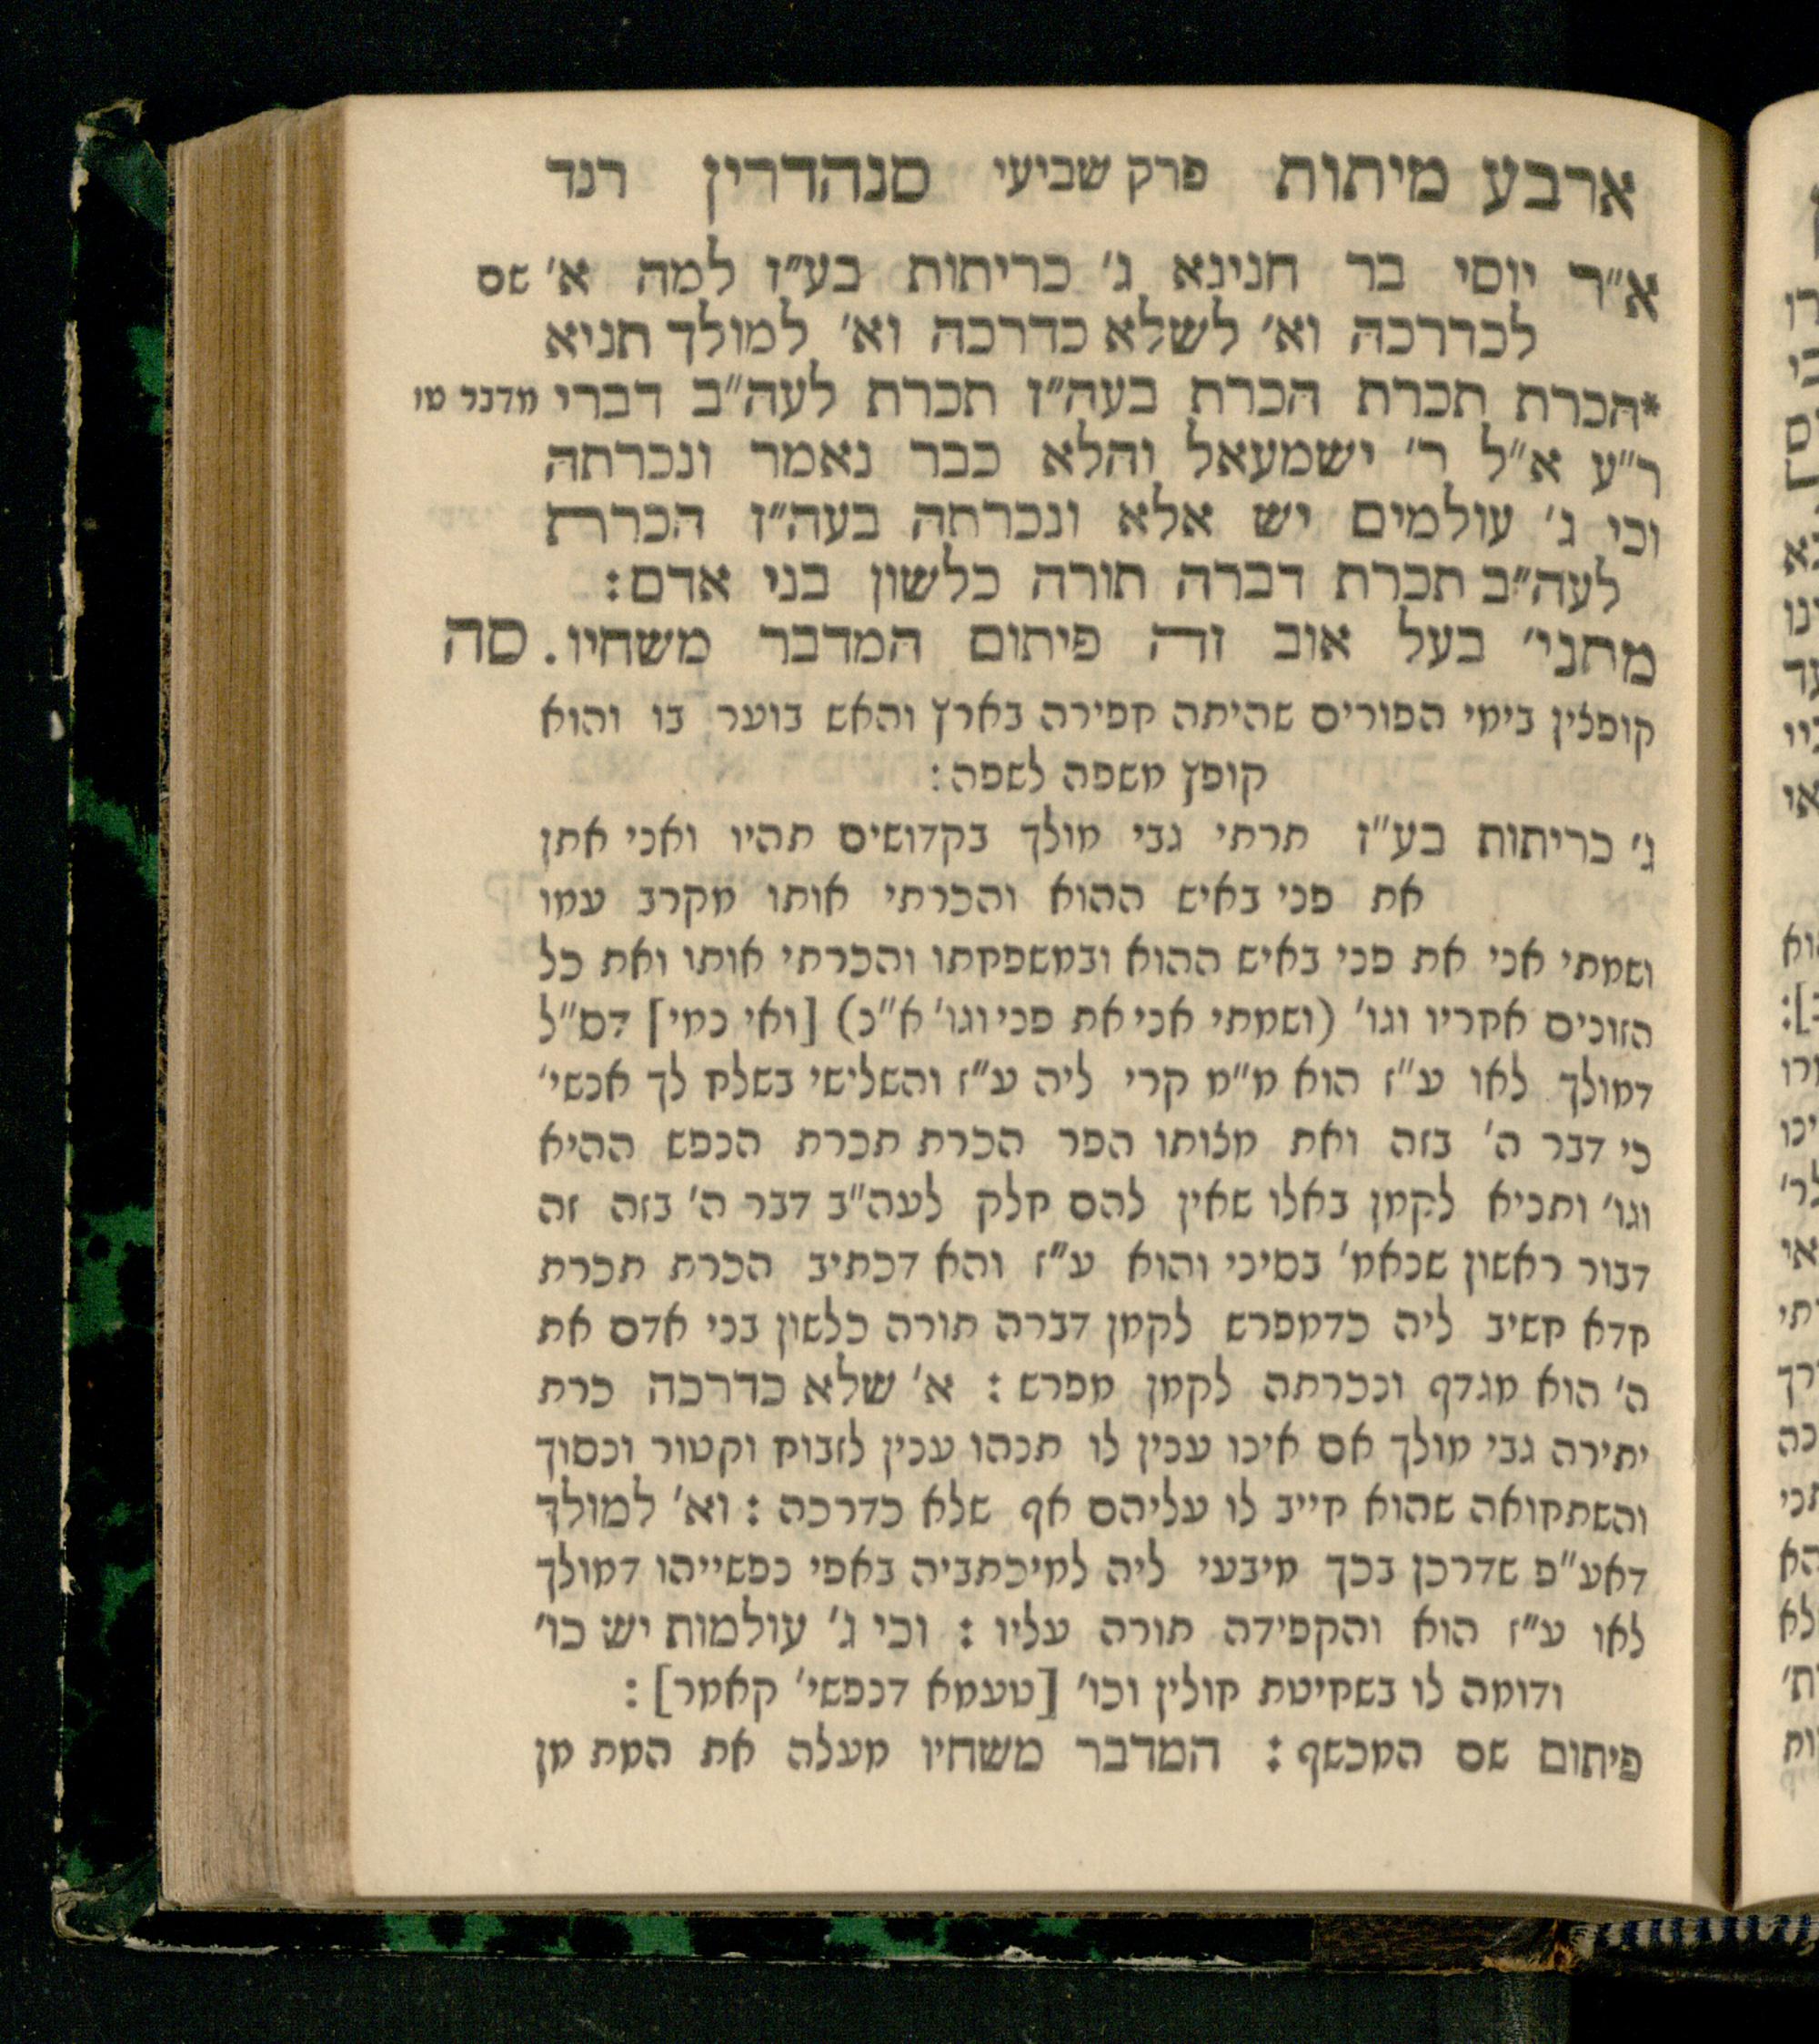 ארבע מיתות פרק שביעי סנהדרין רנד
א״ר יוסי בר חנינא ג׳ כריתות בע״ז למה א׳ שם
לכדרכה וא׳ לשלא כדרכה וא׳ למולך תניא
*הכרת תכרת הכרת בעה״ז תכרת לעה״ב דברי מדבר טו
ר״ע א״ל ר׳ ישמעאל והלא כבר נאמר ונכרתה
וכי ג׳ עולמים יש אלא ונכרתה בעה״ז הכרת
לעה״ב תכרת דברה תורה כלשון בני אדם:
מתני׳ בעל אוב זה פיתום המדבר משחיו. סה
קופצין בימי הפורים שהיתה חפירה בארץ והאש בוער בו והוא
קופץ משפה לשפה:
ג׳ כריתות בע״ז תרתי גבי מולך בקדושים תהיו ואני אתן
את פני באיש ההוא והכרתי אותו מקרב עמו
ושמתי אני את פני באיש ההוא ובמשפחתו והכרתי אותו ואת כל
הזונים אחריו וגו׳ (ושמתי אני את פני וגו׳ א״נ) [ואי נמי] דס״ל
דמולך לאו ע״ז הוא מ״מ קרי ליה ע״ז והשלישי בשלח לך אנשי׳
כי דבר ה׳ בזה ואת מצותו הפר הכרת תכרת הנפש ההיא
וגו׳ ותניא לקמן באלו שאין להם חלק לעה״ב דבר ה׳ בזה זה
דבור ראשון שנאמ׳ בסיני והוא ע״ז והא דכתיב הכרת תכרת
חדא חשיב ליה כדמפרש לקמן דברה תורה כלשון בני אדם את
ה׳ הוא מגדף ונכרתה לקמן מפרש: א׳ שלא כדרכה כרת
יתירה גבי מולך אם אינו ענין לו תנהו ענין לזבוח וקטור ונסוך
והשתחואה שהוא חייב לו עליהם אף שלא כדרכה: וא׳ למולך
דאע״פ שדרכן בכך מיבעי ליה למיכתביה באפי נפשייהו דמולך
לאו ע״ז הוא והקפידה תורה עליו: וכי ג׳ עולמות יש כו׳
ודומה לו בשחיטת חולין וכו׳ [טעמא דנפשי׳ קאמר]:
פיתום שם המכשף: המדבר משחיו מעלה את המת מן